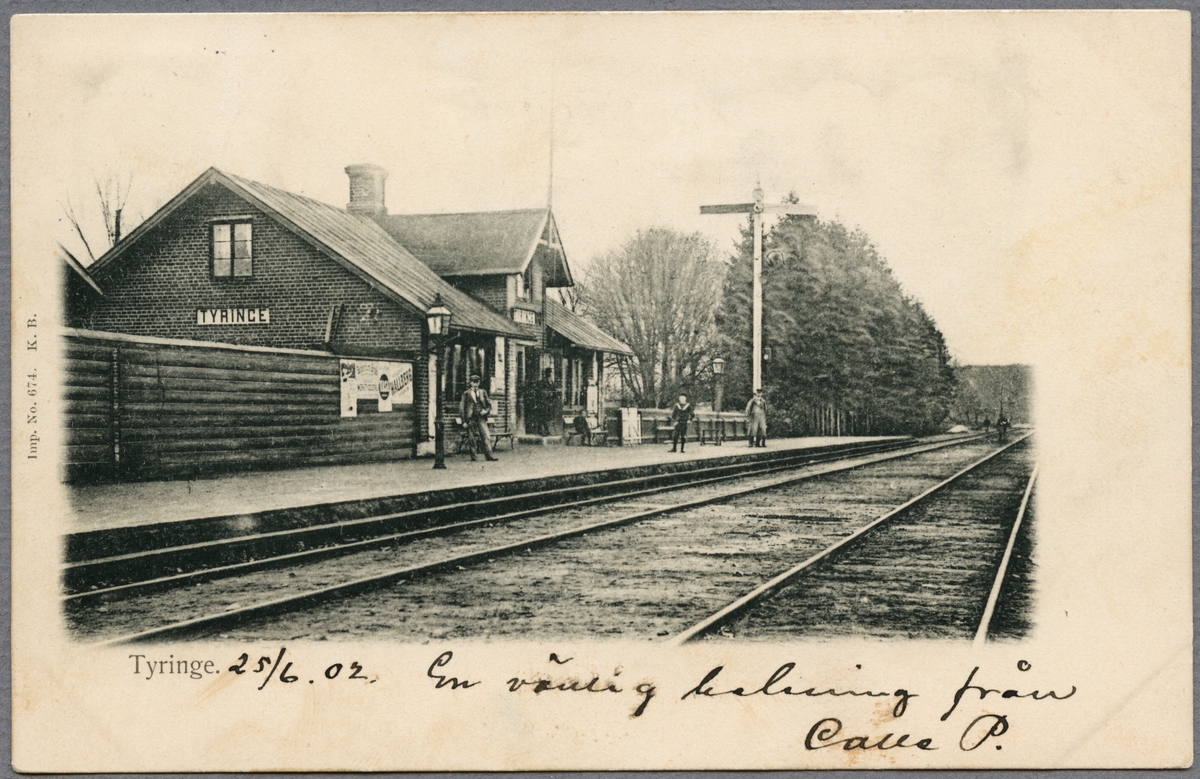 Imp. No. 674. K. B.
TYRINGE
TYRINGE
Tyringe. 25/6. 02. En vänlig helsning från
Calle P.